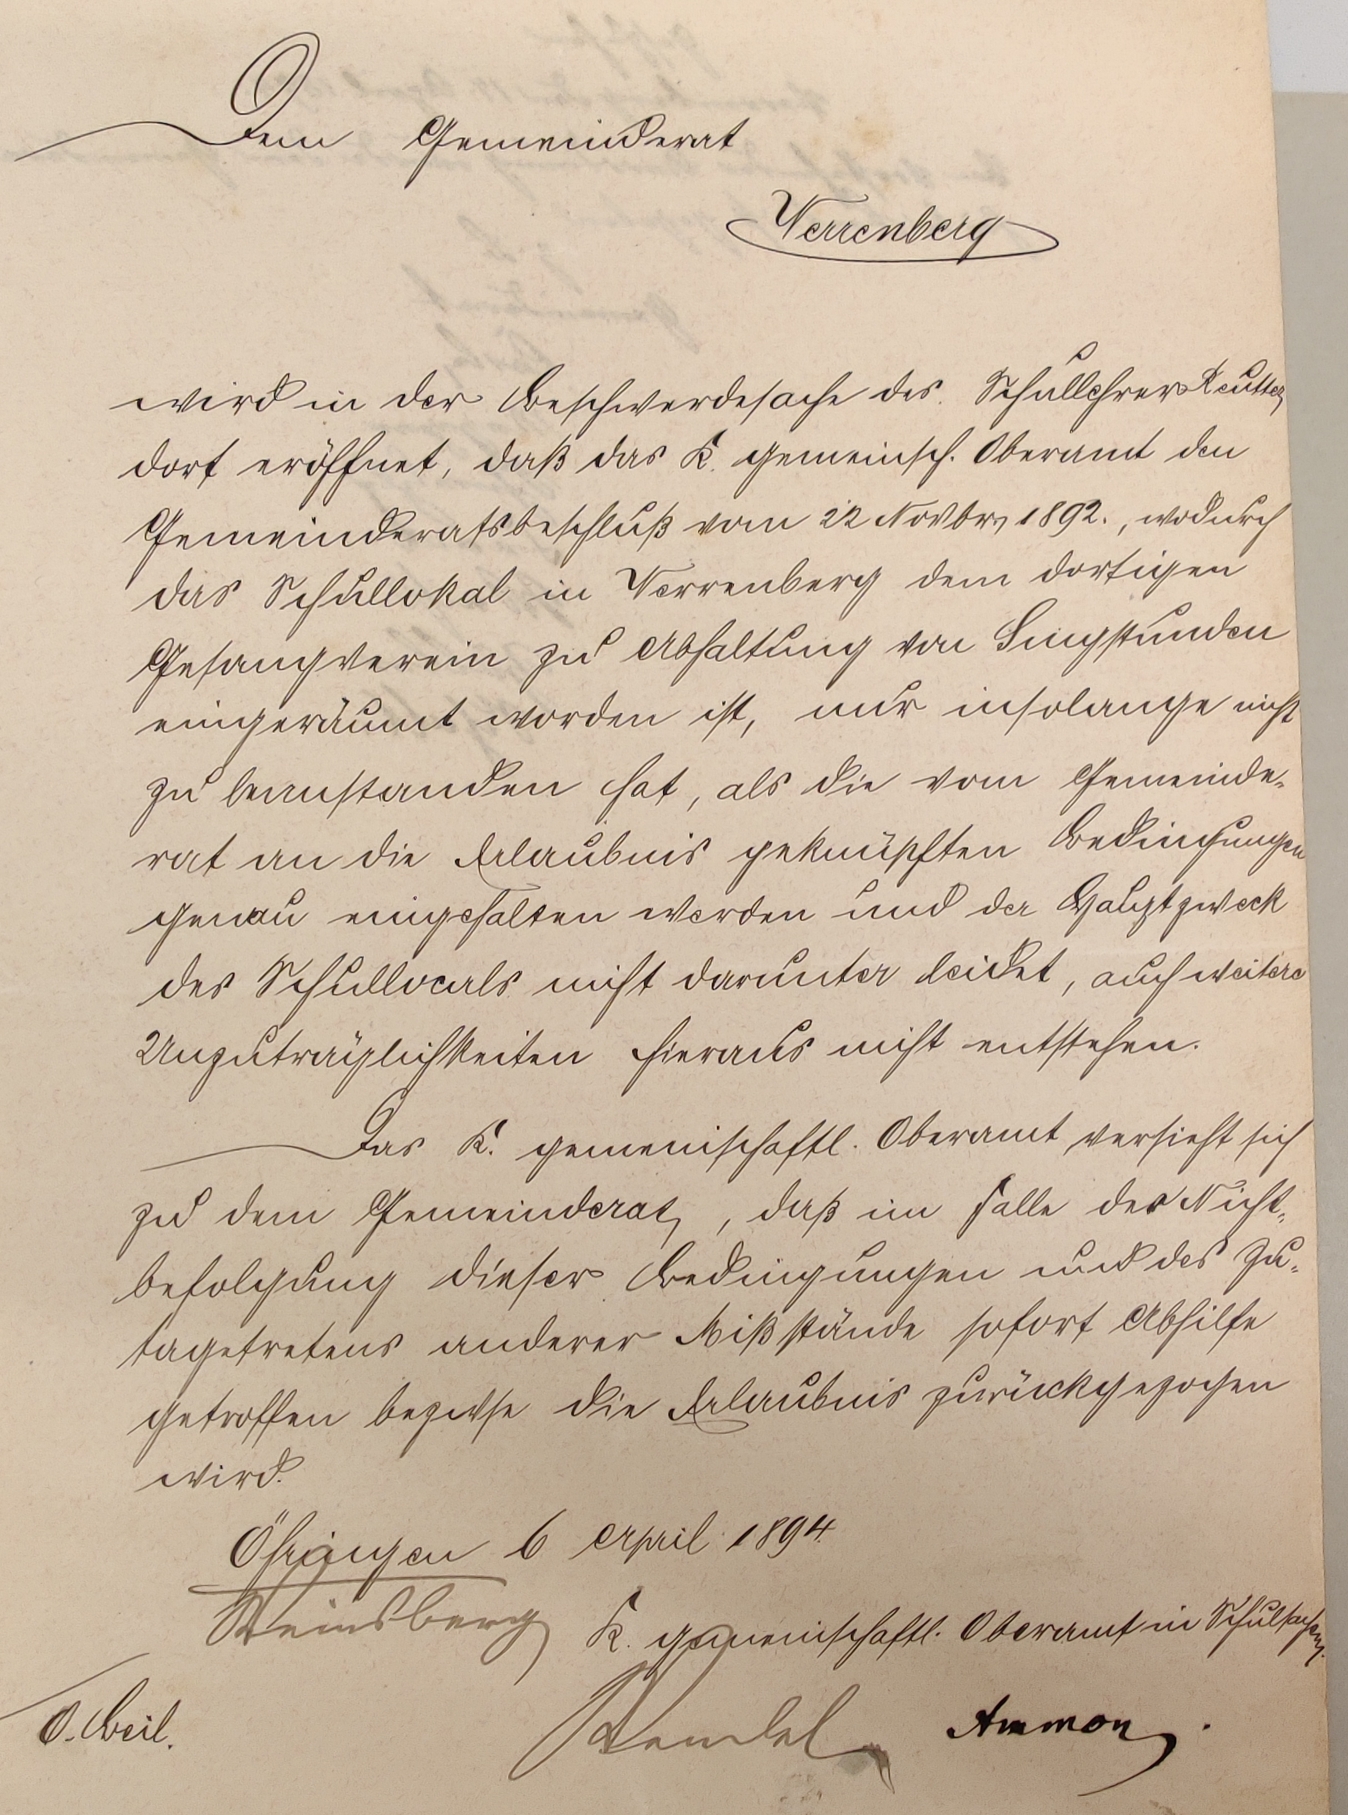 Dem Gemeinderat
Verrenberg
wird in der Beschwerdesache des Schullehrers Reutter
dort eröffnet, daß das K. gemeinsch. Oberamt den
Gemeinderatsbeschluß vom 22 Novbr 1892., wodurch
das Schullokal in Verrenberg dem dortigen
Gesangverein zu Abhaltung von Singstunden
eingeräumt worden ist, nur insolange nicht
zu beanstanden hat, als die vom Gemeinde-
rat an die Erlaubnis geknüpften Bedingungen
genau eingehalten werden und der Hauptzweck
des Schullocals nicht darunter leidet, auch weitere
Unzuträglichkeiten hieraus nicht entstehen.
Das K. gemeinschaftl. Oberamt versieht sich
zu dem Gemeinderat, daß im Falle der Nicht-
befolgung dieser Bedingungen und des Zu-
tagetretens anderer Mißstände sofort Abhilfe
getroffen bezwse die Erlaubnis zurückgezogen
wird.
Öhringen 6 April 1894.
Weinsberg
K. gemeinschaftl. Oberamt in Schulsachen.
0. Beil.
Ammon.